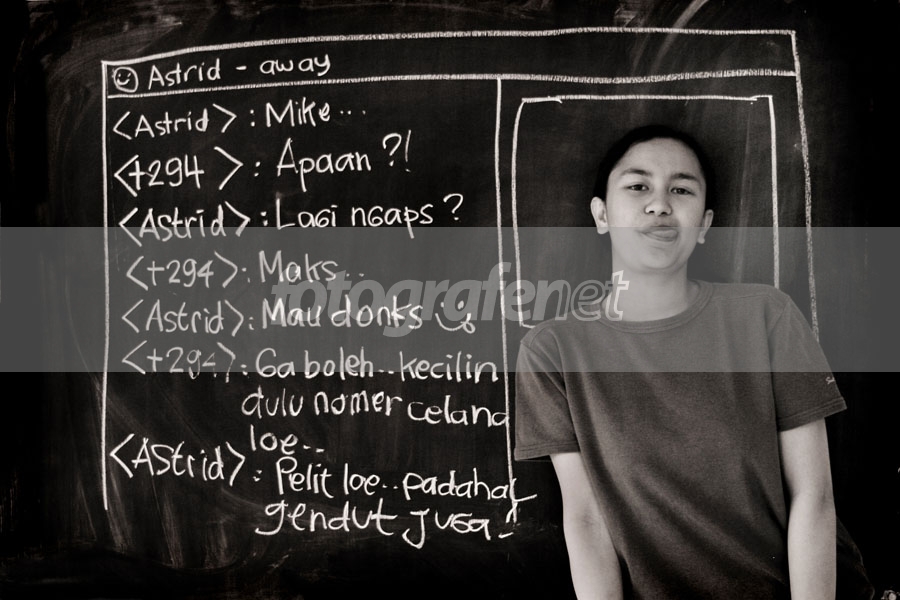 Astrid - away
<Astrid> : Mike...
<+294> : Apaan ?!
<Astrid> : Lagi ngaps ?
<+294> : Maks..
<Astrid> : Mau donts
<+294> : Ga boleh.. kecilin
dulu nomer celana
loe..
<Astrid> : Pelit loe.. padahal
gendut juga !
fotografenet